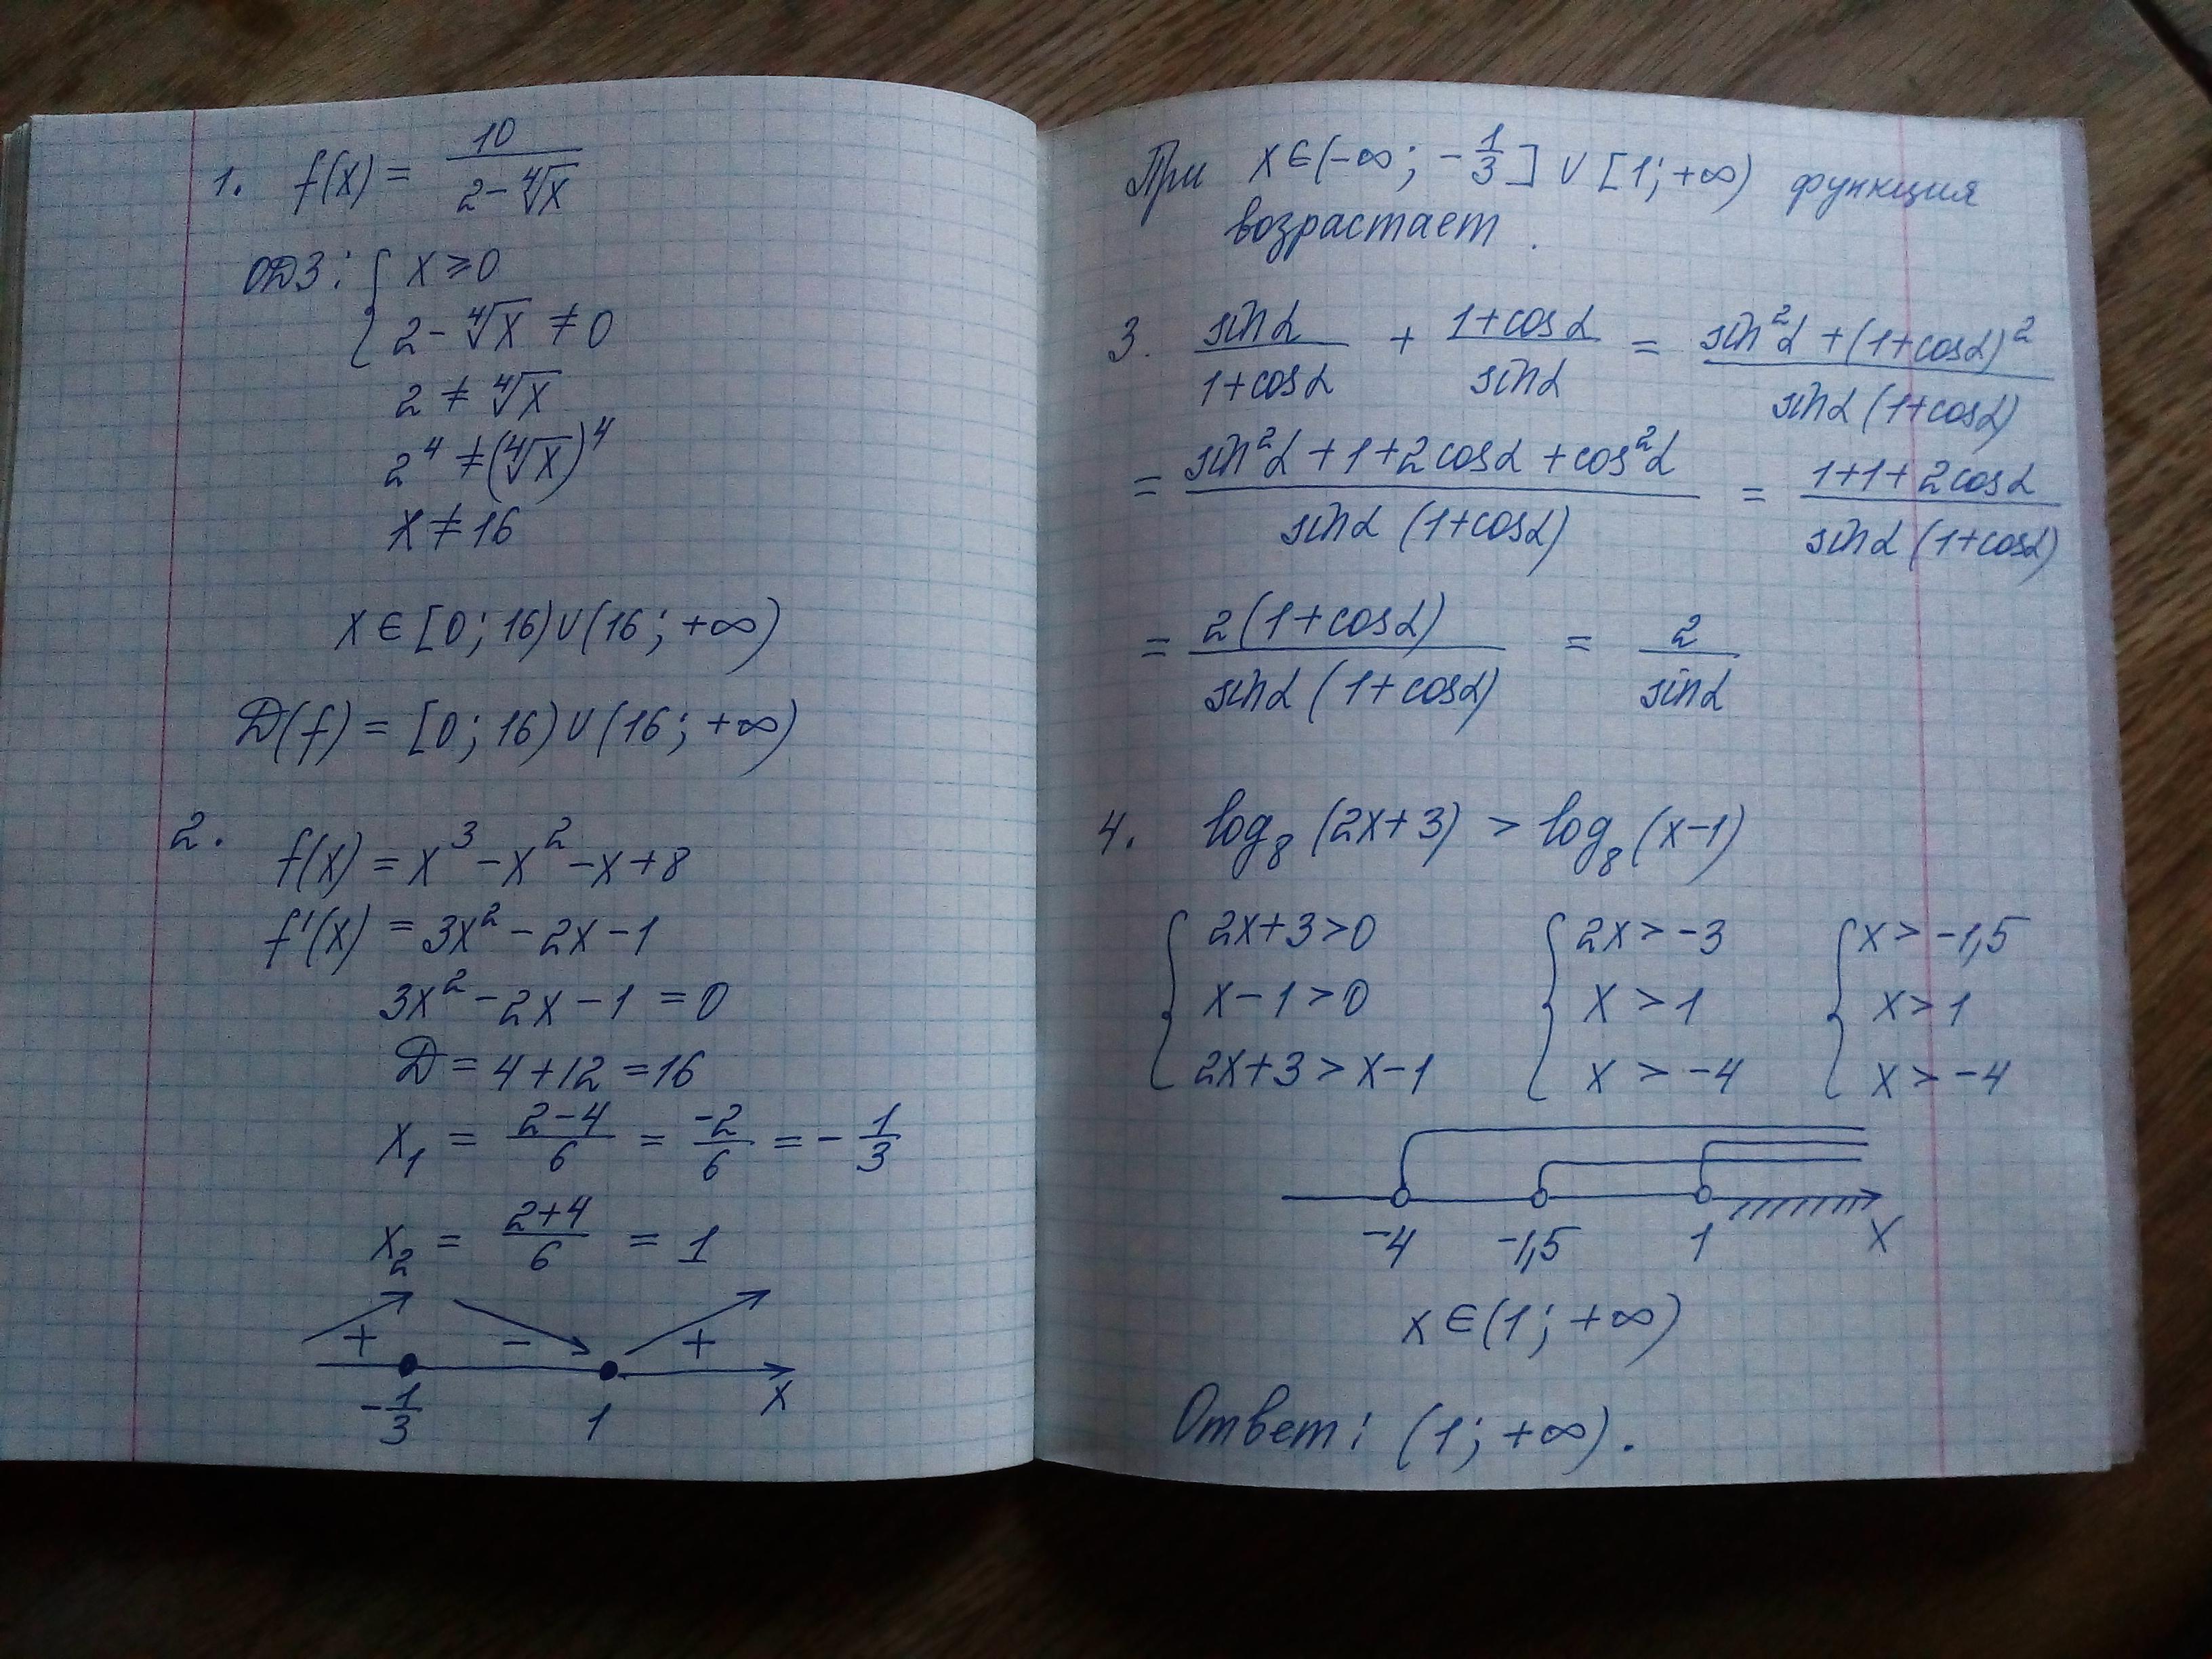 1. f(x) = 10 / (2 - ⁴√x)
ОДЗ: { x ≥ 0
2 - ⁴√x ≠ 0
2 ≠ ⁴√x
2⁴ ≠ (⁴√x)⁴
x ≠ 16
x ∈ [0; 16) ∪ (16; +∞)
D(f) = [0; 16) ∪ (16; +∞)
2. f(x) = x³ - x² - x + 8
f'(x) = 3x² - 2x - 1
3x² - 2x - 1 = 0
D = 4 + 12 = 16
x₁ = (2 - 4)/6 = -2/6 = -1/3
x₂ = (2 + 4)/6 = 1
+ - +
-1/3 1 x
При x ∈ (-∞; -1/3] ∪ [1; +∞) функция
возрастает.
3. sinα/(1 + cosα) + (1 + cosα)/sinα = (sin²α + (1 + cosα)²)/(sinα (1 + cosα))
= (sin²α + 1 + 2cosα + cos²α)/(sinα (1 + cosα)) = (1 + 1 + 2cosα)/(sinα (1 + cosα))
= 2(1 + cosα)/(sinα (1 + cosα)) = 2/sinα
4. log₈ (2x + 3) > log₈ (x - 1)
{ 2x + 3 > 0 { 2x > -3 { x > -1,5
x - 1 > 0 x > 1 x > 1
2x + 3 > x - 1 x > -4 x > -4
-4 -1,5 1 x
x ∈ (1; +∞)
Ответ: (1; +∞).